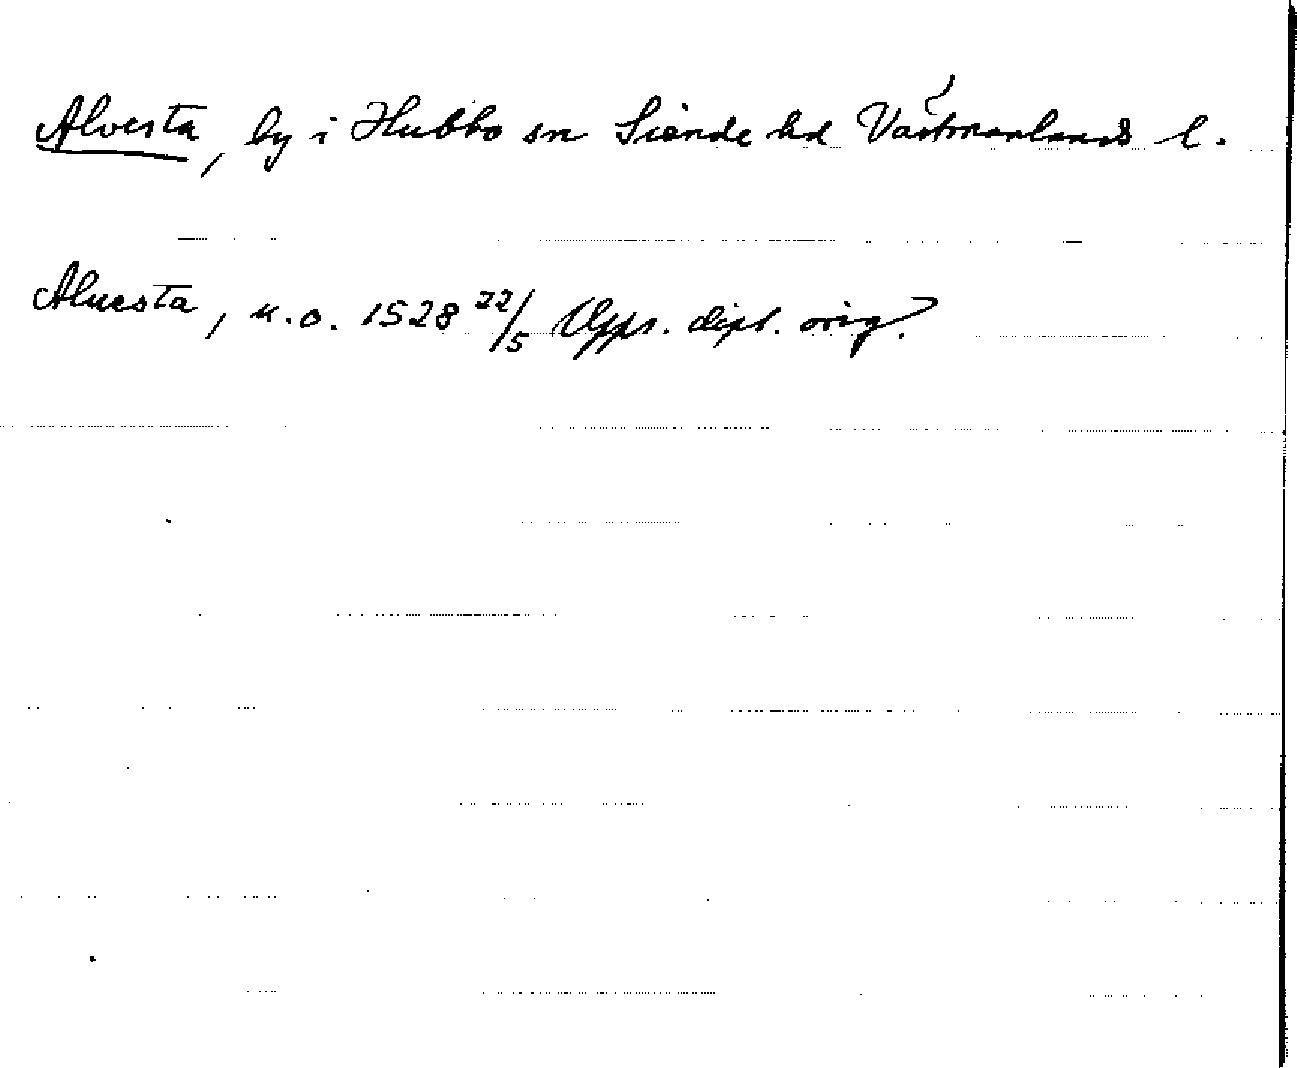 Alvesta, by i Hubbo sn Siende hd Västmanlands l.
Aluesta, u.o. 1528 22/5 Upps. dipl. orig.